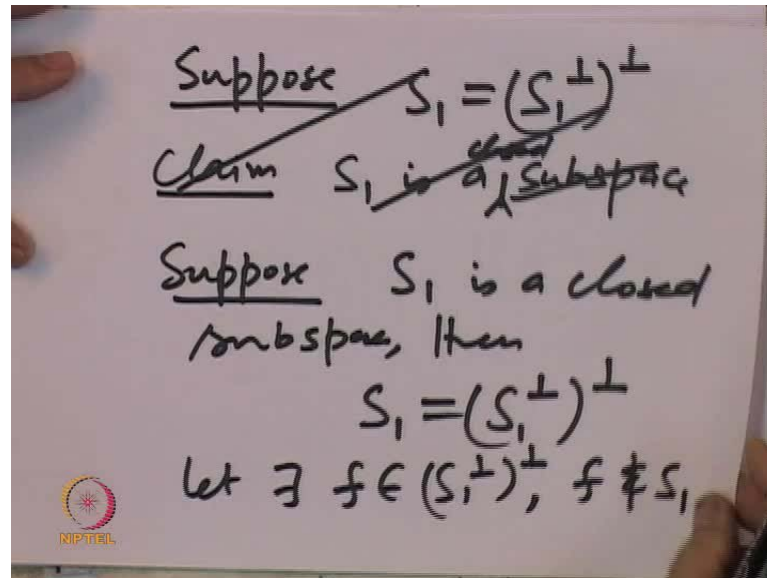 Suppose S₁ = (S₁^⊥)^⊥
Claim S₁ is a closed subspac
Suppose S₁ is a closed
subspac, then
S₁ = (S₁^⊥)^⊥
let ∃ f ∈ (S₁^⊥)^⊥, f ∉ S₁
NPTEL